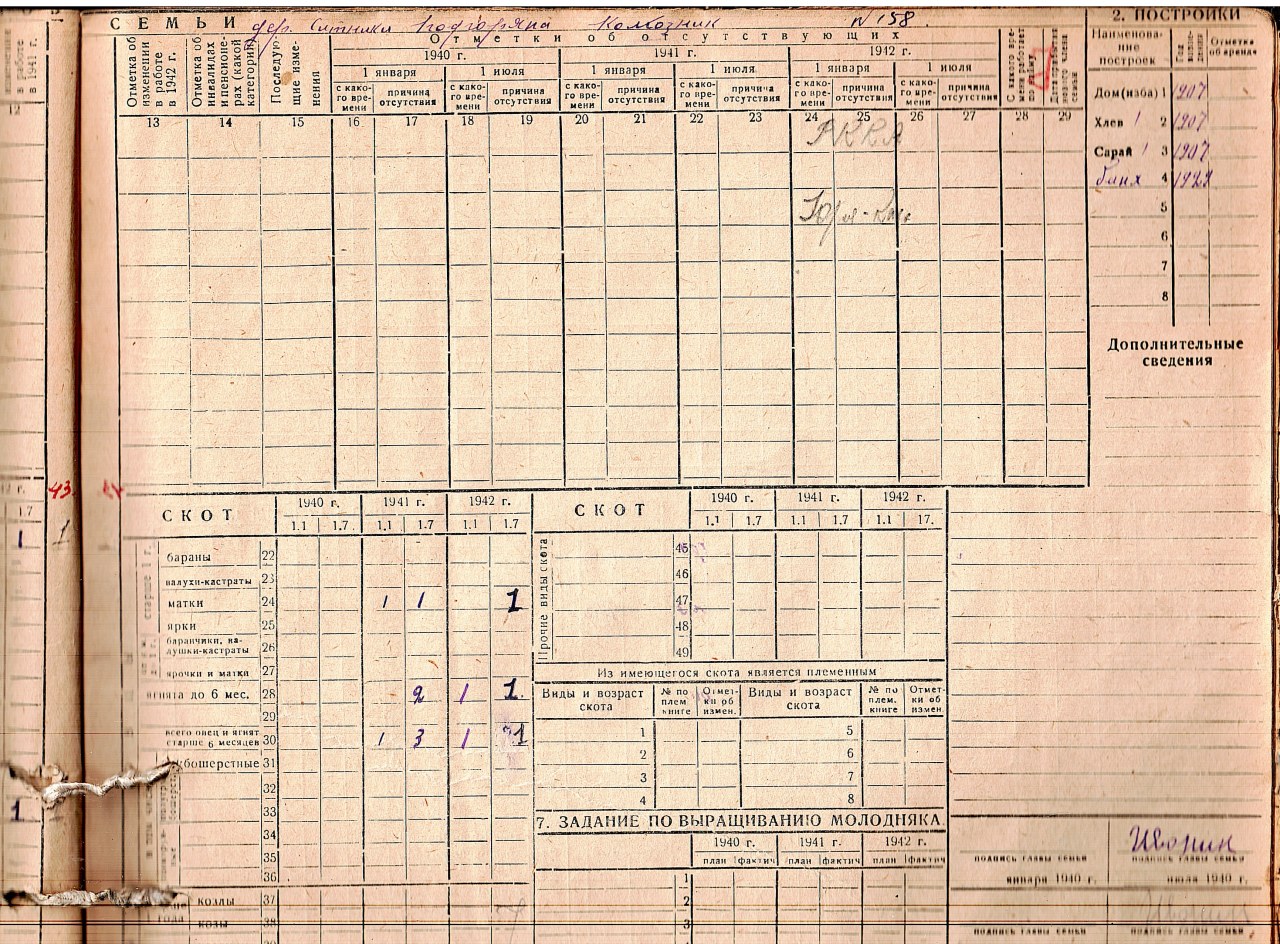 СЕМЬИ дер. Ситники № 158.
Отметки об отсутствующих
1940 г. 1941 г. 1942 г.
1 января 1 июля 1 января 1 июля 1 января 1 июля
Отметка об изменении в работе в 1942 г.
Отметка об инвалидах и пенсионерах (какой категории)
Последующие изменения
с како-го вре-мени причина отсутствия с како-го вре-мени причина отсутствия с како-го вре-мени причина отсутствия с како-го вре-мени причина отсутствия с како-го вре-мени причина отсутствия с како-го вре-мени причина отсутствия
12 13 14 15 16 17 18 19 20 21 22 23 24 25 26 27 28 29
РККА
2. ПОСТРОЙКИ
Наименова-ние построек
Дом(изба) 1 1907
Хлев 1 2 1907
Сарай 1 3 1907
баня 4
5
6
7
8
Дополнительные
сведения
43
СКОТ 1940 г. 1941 г. 1942 г.
1.1 1.7. 1.1 1.7 1.1 1.7
бараны 22
валухи-кастраты 23
матки 24 1 1 1
ярки 25
баранчики, ва-лушки-кастраты 26
ярочки и матки 27
ягнята до 6 мес. 28 2 1 1
29
всего овец и ягнят старше 6 месяцев 30 1 3 1 1
31
32
33
34
35
36
козлы 37
козы 38
СКОТ 1940 г. 1941 г. 1942 г.
1.1 1.7 1.1 1.7 1.1 17.
Прочие виды скота
45
46
47
48
49
Из имеющегося скота является племенным
Виды и возраст скота № по плем. книге Отмет-ки об измен. Виды и возраст скота № по плем. книге Отмет-ки об измен.
1 5
2 6
3 7
4 8
7. ЗАДАНИЕ ПО ВЫРАЩИВАНИЮ МОЛОДНЯКА
1940 г. 1941 г. 1942 г.
план фактич план фактич план фактич
1
2
3
подпись главы семьи подпись главы семьи
января 1940 г. июля 1940 г.
подпись главы семьи подпись главы семьи